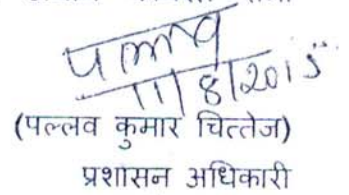 पल्लव
11/8/2015
(पल्लव कुमार चित्तेज)
प्रशासन अधिकारी